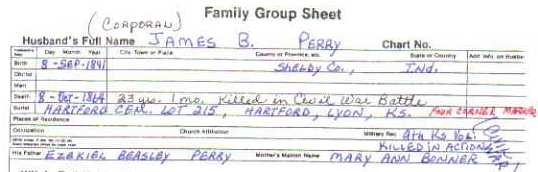 Family Group Sheet
(CORPORAL)
Husband's Full Name JAMES B. PERRY Chart No.
Day Month Year City, Town or Place County or Province, etc. State or Country Add. Info. on Husband
Birth 8-SEP-1841 SHELBY CO., IND.
Chr'nd
Marr.
Death 8-Oct-1864 23 yrs. 1 mo. Killed in Civil War Battle
Burial HARTFORD CEM. LOT 215, HARTFORD, LYON, KS. FOUR CORNER MARKERS
Places of Residence
Occupation Church Affiliation Military Rec. 9th Ks Vol.
KILLED IN ACTION
His Father EZEKIEL BEASLEY PERRY Mother's Maiden Name MARY ANN BONNER